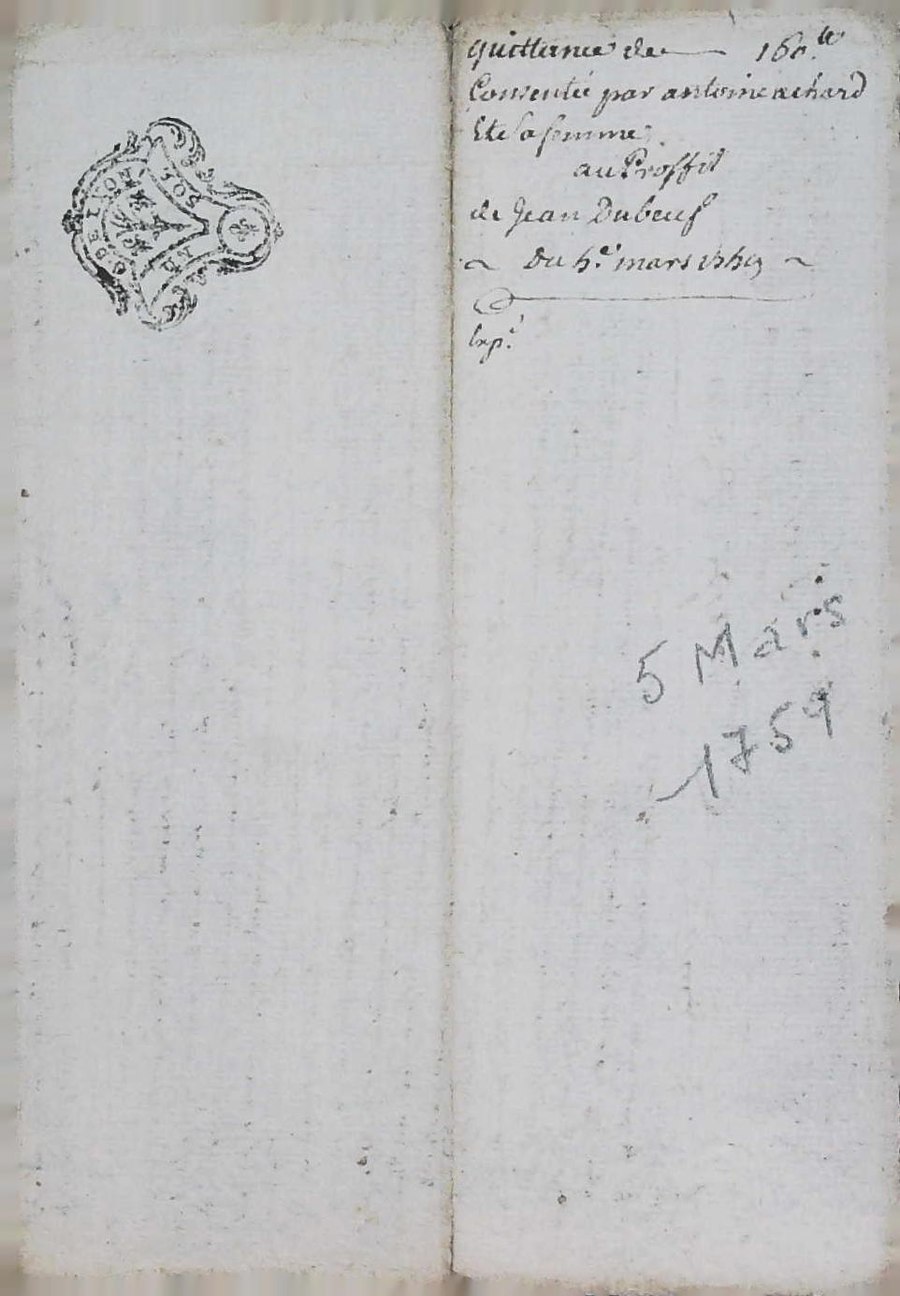 G DE LYON
SOLS
quittance de — 160.lt
Consentie par antoine achard
Et sa femme
au Proffit
de Jean Dubeuf
~ Du 5.e mars 1759 ~
Exp.e
5 Mars
1759